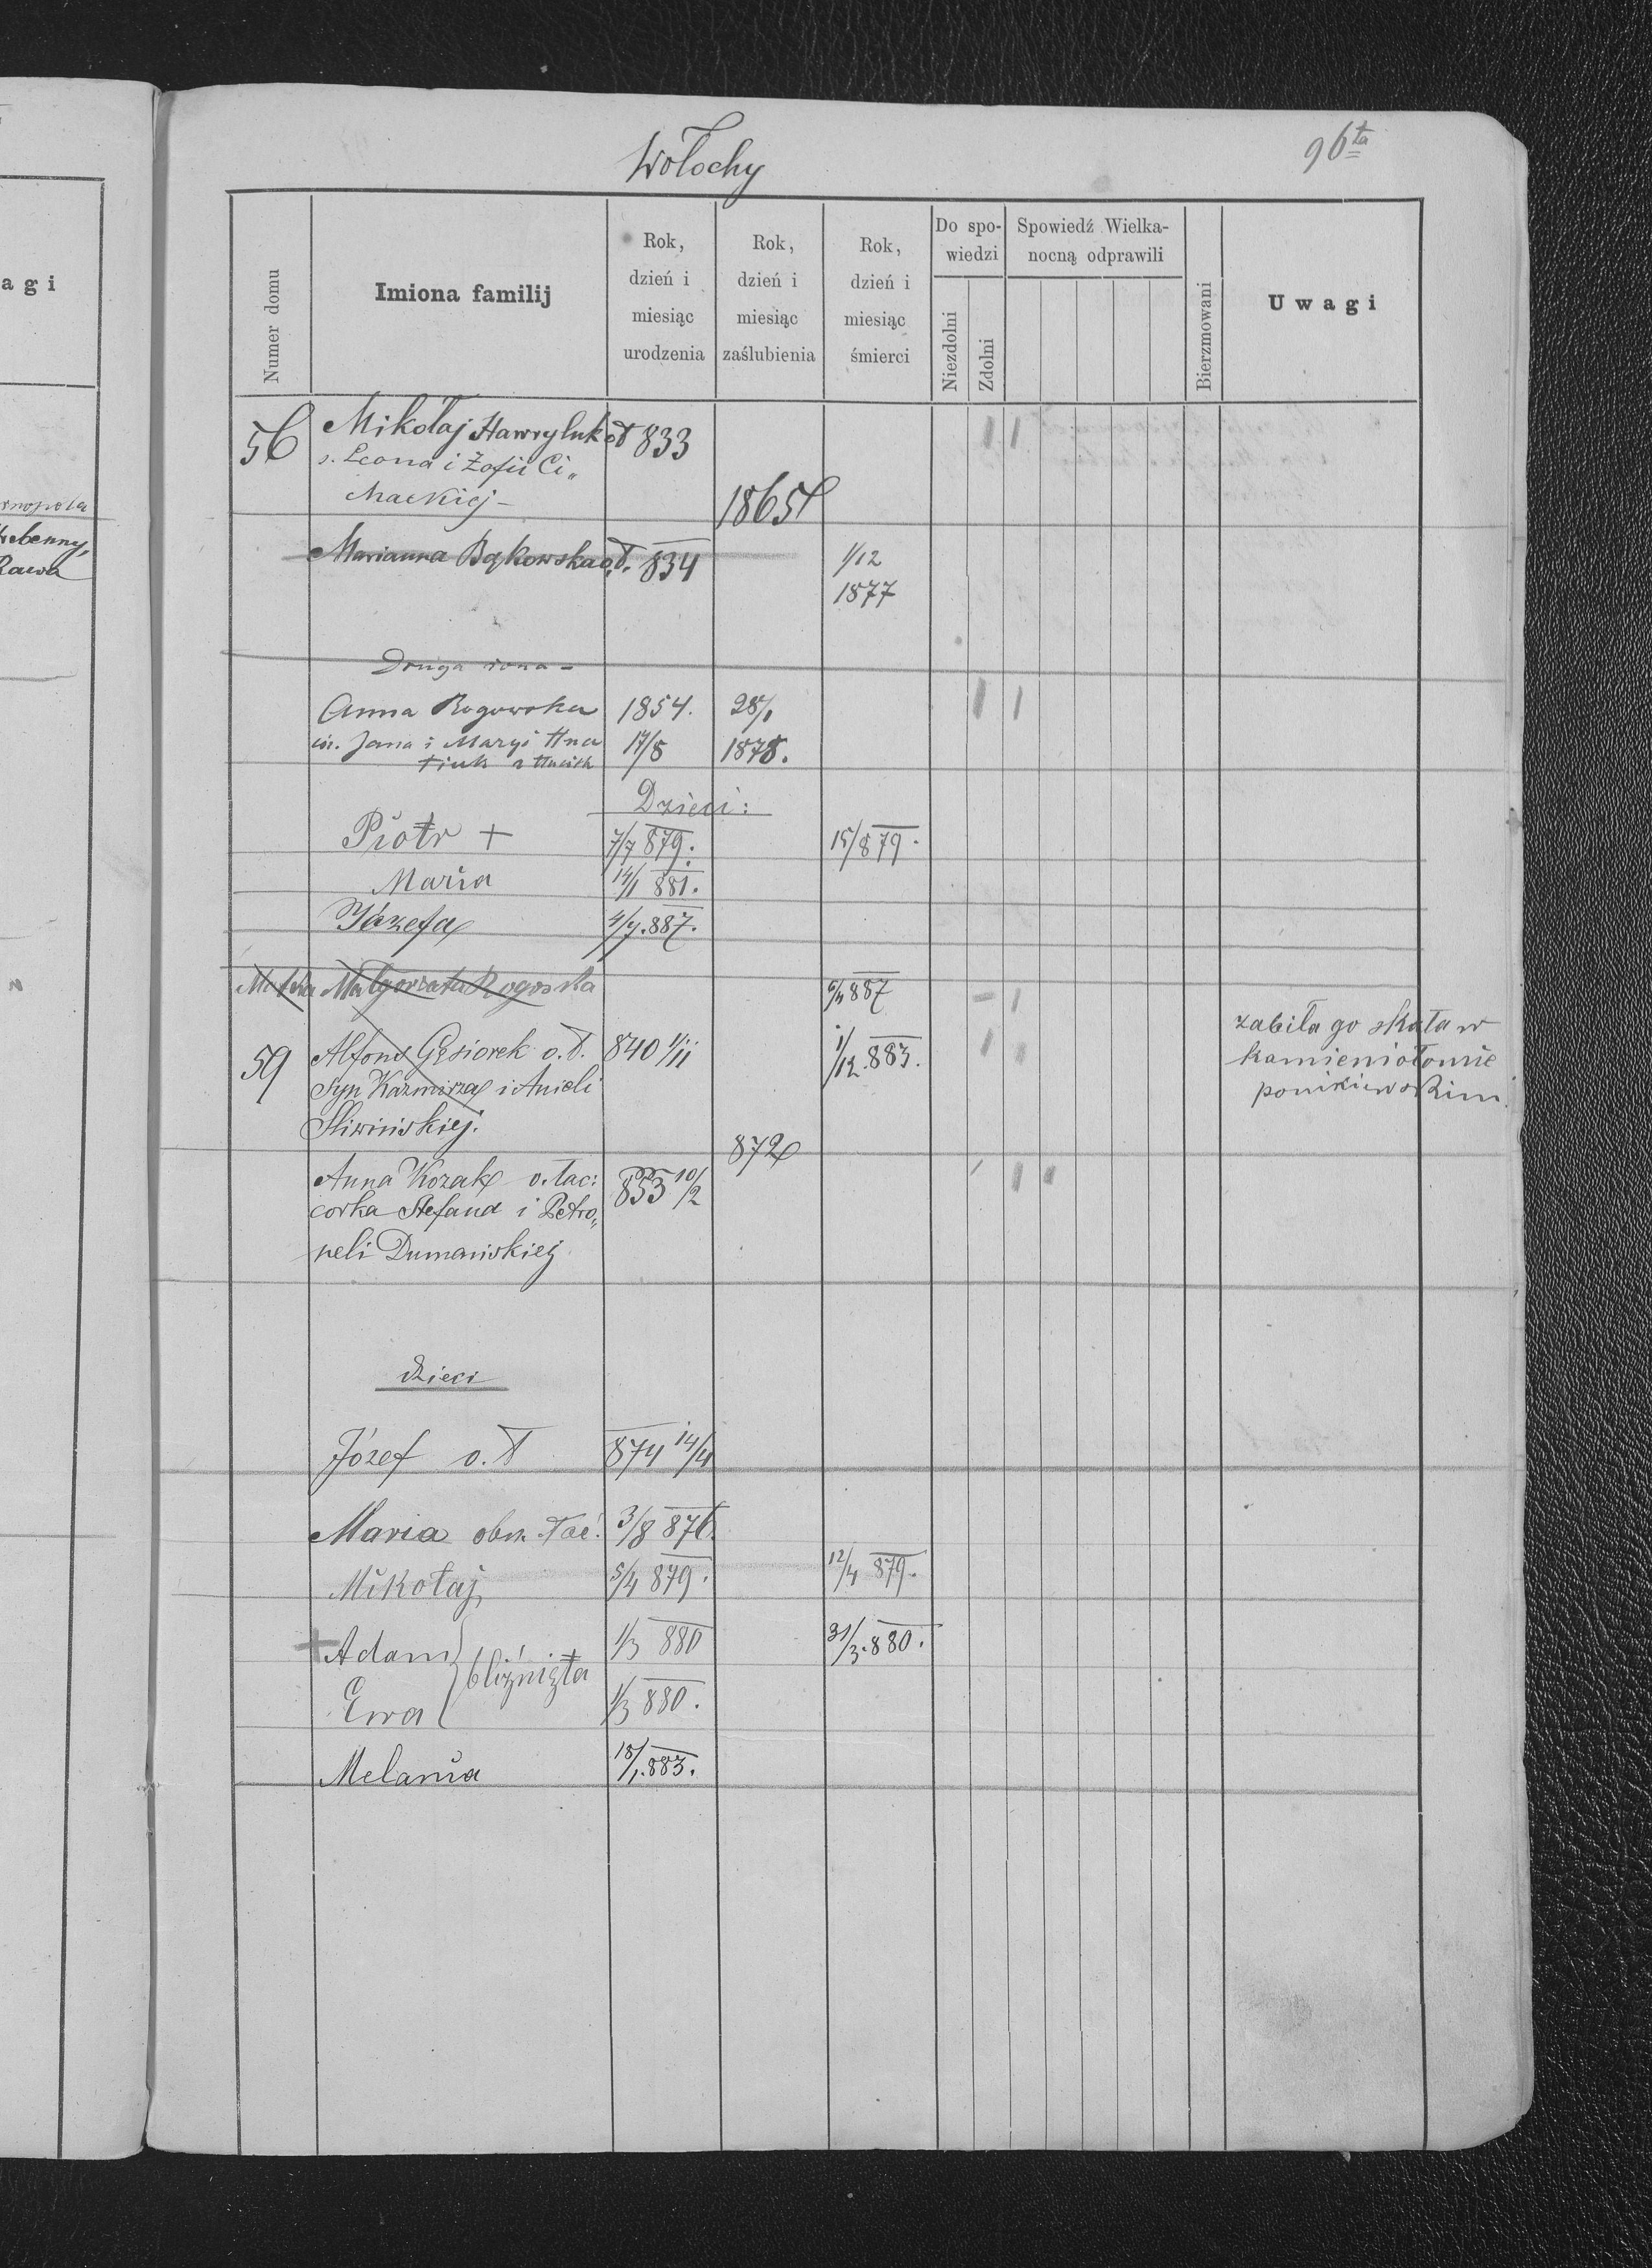 Wołochy
96ta
agi
Numer domu
Imiona familij
Rok, dzień i miesiąc urodzenia
Rok, dzień i miesiąc zaślubienia
Rok, dzień i miesiąc śmierci
Do spo-wiedzi
Niezdolni
Zdolni
Spowiedź Wielka-nocną odprawili
Bierzmowani
Uwagi
56 Mikołaj Hawryluk o.t 833
s. Leona i Zofii Ci„
mackiej -
1865
Marianna Bąkowska o.t. 834 1/12
1877
Druga żona -
Anna Rogowska 1854. 28/1
cór. Jana i Maryi Hna
17/8 1878.
tiuk
Dzieci:
Piotr + 7/7 879. 15/8 79.
Maria 14/1 881.
Józefa 4/7. 887.
Matka Małgorzata Rogoska 887
59 Alfons Gęsiorek o.t. 840 1/11 1/12. 883. zabiła go skała w
Syn Kazmirza i Anieli kamieniołomie
Sliwińskiej. ponikiewskim.
872
Anna Kozak o. łac: 853 10/2
corka Stefana i Petro„
neli Dumańskiej
dzieci
Józef o.t 874 14/4
Maria obrz. łać. 3/8 876.
Mikołaj 5/4 879. 12/4 879.
+ Adam 1/3 880 31/3. 880.
bliźnięta
Ewa 1/3 880.
Melania 18/1. 883.